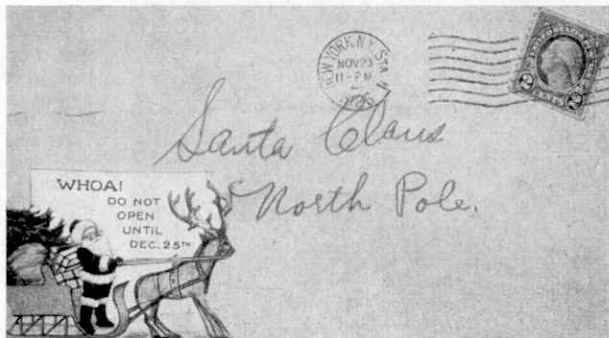 NEW YORK, N.Y. STA.
NOV 23
11-PM
Santa Claus
North Pole.
WHOA!
DO NOT
OPEN
UNTIL
DEC. 25TH
2 2